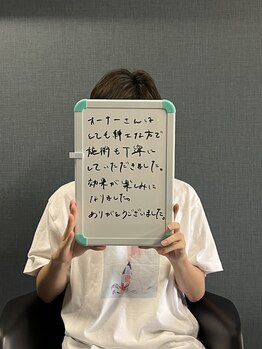 オーナーさんは
とても紳士な方で
施術も丁寧に
していただきました。
効果が楽しみに
なりました。
ありがとうございました。